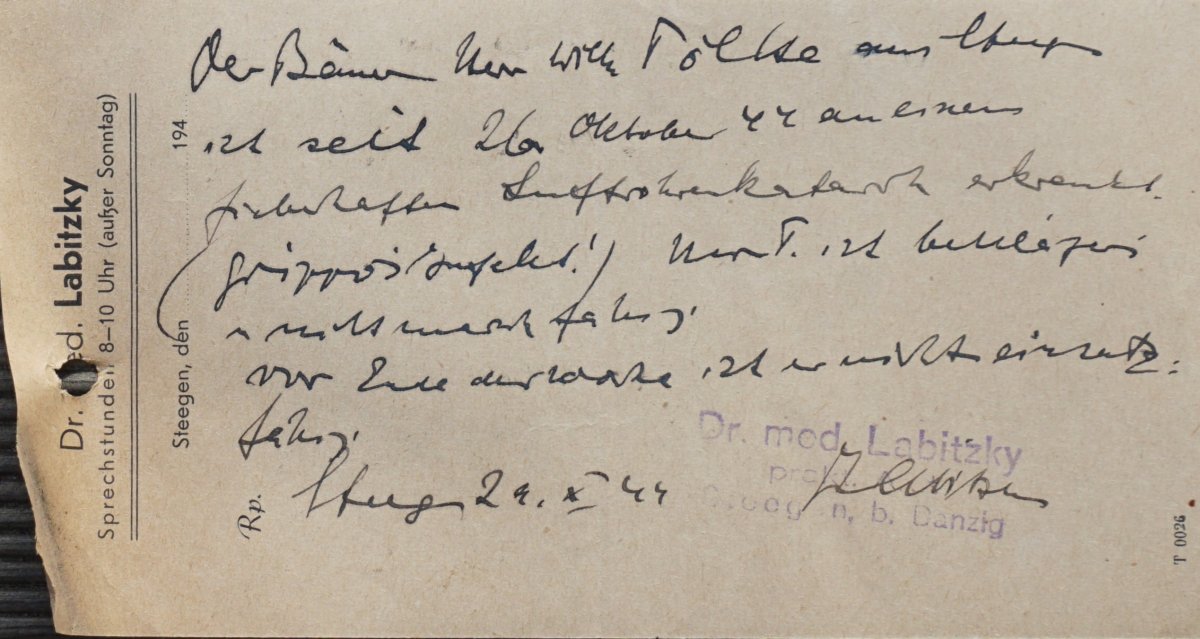 Dr. med. Labitzky
Sprechstunden 8–10 Uhr (außer Sonntag)
Steegen, den 194
Rp.
Der Herr Will. Töltke aus
ist seit 26. Oktober 44 an einem
fieberhaften Luftröhrenkatarrh erkrankt.
(grippös Infekt!) Herr T. ist bettlägerig
u nicht marschfähig.
vor Ende der Woche ist er nicht einsatz-
fähig.
29. X 44
Dr. med. Labitzky
prakt.
Steegen, b. Danzig
T 0026